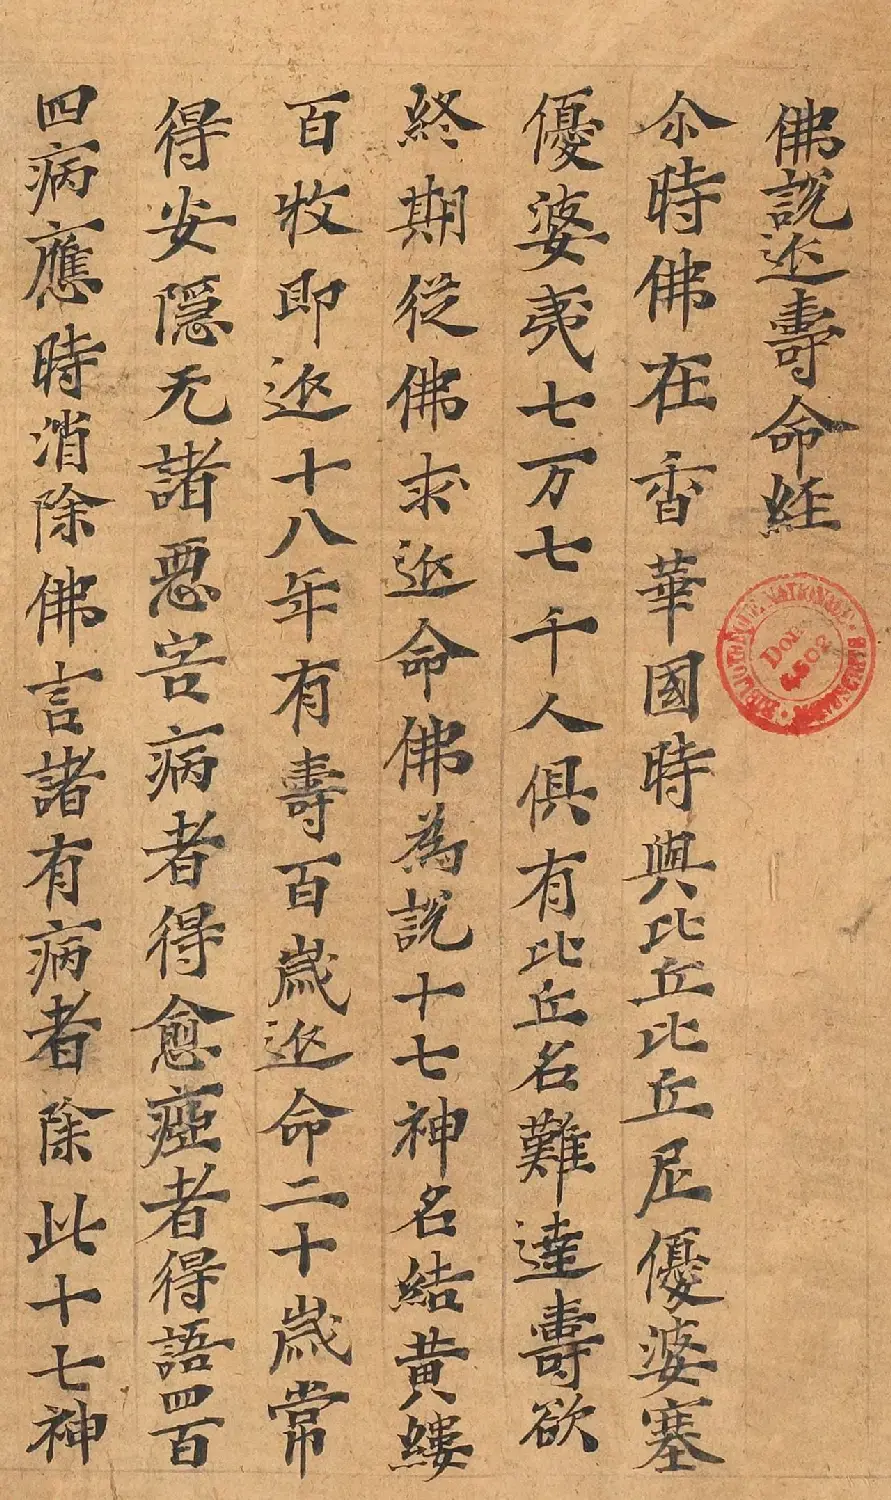 佛說延壽命經
尒時佛在香華國時與比丘比丘尼優婆塞
優婆夷七万七千人俱有比丘名難達壽欲
終期從佛求延命佛為說十七神名結黃縷
百牧即延十八年有壽百歲延命二十歲常
得安隱无諸惡害病者得愈瘂者得語四百
四病應時消除佛言諸有病者除此十七神
BIBLIOTHÈQUE NATIONALE
Don